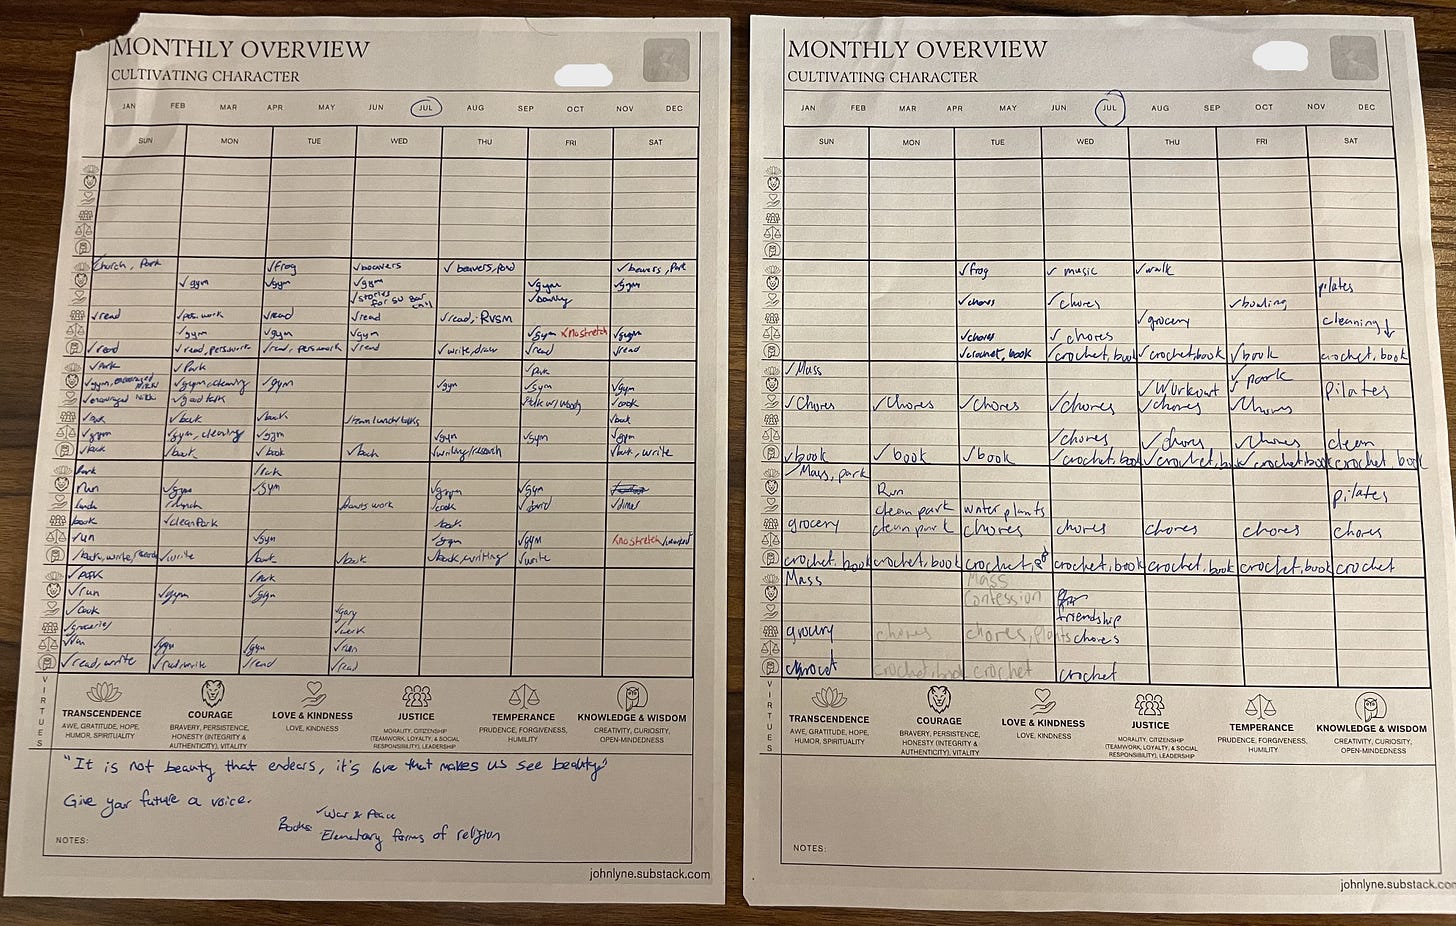 MONTHLY OVERVIEW
CULTIVATING CHARACTER
JAN FEB MAR APR MAY JUN JUL AUG SEP OCT NOV DEC
SUN MON TUE WED THU FRI SAT
Church, Park ✓frog ✓beavers ✓beavers, pond ✓beavers, Park
✓gym ✓gym ✓gym ✓gym ✓gym
✓stories for su bar ✓bowling
✓read ✓pers. work ✓read ✓read ✓read, RVSM
✓gym ✓gym ✓gym ✓gym ✗no stretch ✓gym
✓read ✓read, pers. work ✓read, pers. work ✓read ✓write, draw ✓read ✓read
✓Park ✓Park ✓Park
✓gym, encouraged ✓gym, cleaning ✓gym ✓gym ✓gym ✓gym
✓encouraged ✓good talk ✓talk w/ ✓cook
✓book ✓book ✓book ✓team lunch ✓book
✓gym ✓gym, cleaning ✓gym ✓gym ✓gym ✓gym
✓book ✓book ✓book ✓book ✓writing/research ✓book, write
Park ✓Park
run ✓gym ✓gym ✓gym ✓gym
lunch ✓lunch work ✓cook ✓david ✓dinner
book ✓clean Park book
run ✓gym ✓gym ✓gym ✗no stretch
✓book, write, ✓write ✓book ✓book ✓book, writing ✓write
✓park ✓Park
✓run ✓gym ✓gym
✓cook ✓gary
✓groceries ✓work
✓run ✓gym ✓gym ✓run
✓read, write ✓read write ✓read ✓read
VIRTUES
TRANSCENDENCE
AWE, GRATITUDE, HOPE,
HUMOR, SPIRITUALITY
COURAGE
BRAVERY, PERSISTENCE,
HONESTY (INTEGRITY &
AUTHENTICITY), VITALITY
LOVE & KINDNESS
LOVE, KINDNESS
JUSTICE
MORALITY, CITIZENSHIP
(TEAMWORK, LOYALTY, & SOCIAL
RESPONSIBILITY), LEADERSHIP
TEMPERANCE
PRUDENCE, FORGIVENESS,
HUMILITY
KNOWLEDGE & WISDOM
CREATIVITY, CURIOSITY,
OPEN-MINDEDNESS
"It is not beauty that endears, it's love that makes us see beauty"
Give your future a voice.
Books: ✓War & Peace
Elementary forms of religion
NOTES:
johnlyne.substack.com
MONTHLY OVERVIEW
CULTIVATING CHARACTER
JAN FEB MAR APR MAY JUN JUL AUG SEP OCT NOV DEC
SUN MON TUE WED THU FRI SAT
✓frog ✓music ✓walk
pilates
✓chores ✓chores ✓bowling
✓grocery cleaning↓
✓chores ✓chores
✓crochet, book ✓crochet, book ✓crochet, book ✓book crochet, book
✓Mass
✓Workout ✓park pilates
✓Chores ✓Chores ✓Chores ✓chores ✓chores ✓Chores
✓chores ✓chores ✓Chores clean
✓book ✓book ✓book ✓crochet, book ✓crochet, book ✓crochet, book crochet book
✓Mass, park
Run pilates
clean park water plants
grocery clean park chores chores chores chores chores
crochet, book crochet, book crochet, crochet, book crochet, book crochet, book crochet
Mass Mass
Confession
friendship
grocery chores chores, plants chores
crochet crochet, book crochet crochet
VIRTUES
TRANSCENDENCE
AWE, GRATITUDE, HOPE,
HUMOR, SPIRITUALITY
COURAGE
BRAVERY, PERSISTENCE,
HONESTY (INTEGRITY &
AUTHENTICITY), VITALITY
LOVE & KINDNESS
LOVE, KINDNESS
JUSTICE
MORALITY, CITIZENSHIP
(TEAMWORK, LOYALTY, & SOCIAL
RESPONSIBILITY), LEADERSHIP
TEMPERANCE
PRUDENCE, FORGIVENESS,
HUMILITY
KNOWLEDGE & WISDOM
CREATIVITY, CURIOSITY,
OPEN-MINDEDNESS
NOTES:
johnlyne.substack.com